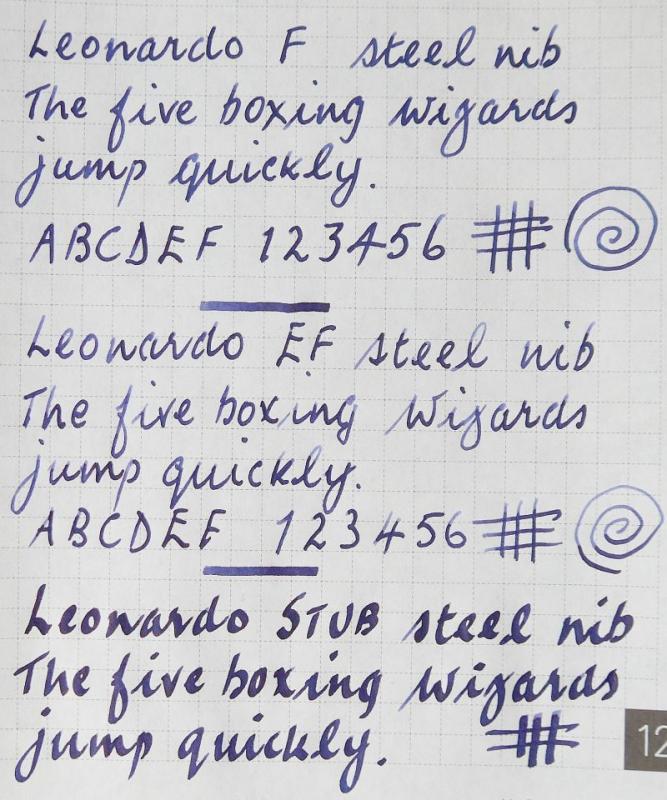 Leonardo F steel nib
The five boxing wizards
jump quickly.
ABCDEF 123456
Leonardo EF steel nib
The five boxing wizards
jump quickly.
ABCDEF 123456
Leonardo STUB steel nib
The five boxing wizards
jump quickly.
12